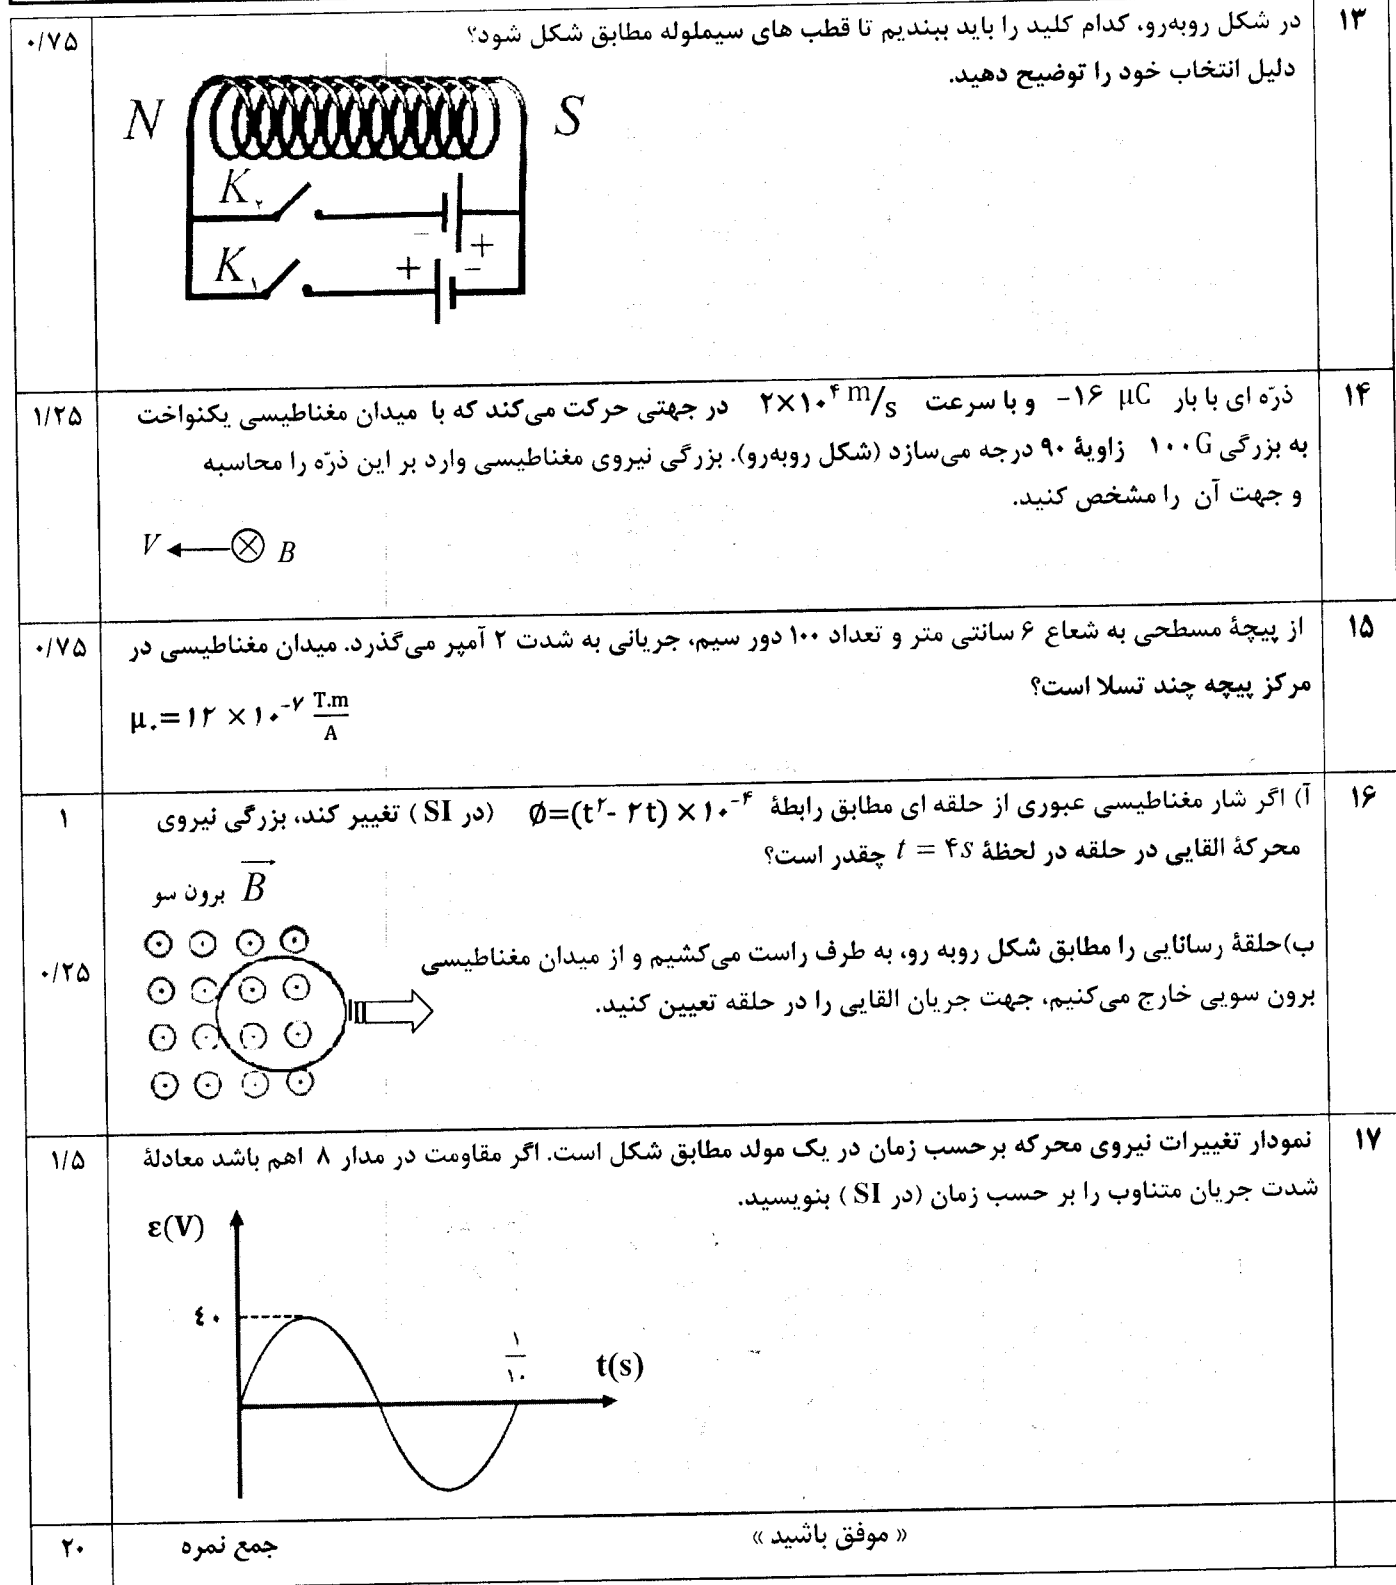 ۱۳
در شکل روبه‌رو، کدام کلید را باید ببندیم تا قطب های سیملوله مطابق شکل شود؟
۰/۷۵
دلیل انتخاب خود را توضیح دهید.
N
S
K۲
- +
K۱
+ -
۱۴
ذرّه ای با بار -۱۶ μC و با سرعت ۲×۱۰^۴ m/s در جهتی حرکت می‌کند که با میدان مغناطیسی یکنواخت
۱/۲۵
به بزرگی ۱۰۰G زاویهٔ ۹۰ درجه می‌سازد (شکل روبه‌رو). بزرگی نیروی مغناطیسی وارد بر این ذرّه را محاسبه
و جهت آن را مشخص کنید.
V B
۱۵
از پیچهٔ مسطحی به شعاع ۶ سانتی متر و تعداد ۱۰۰ دور سیم، جریانی به شدت ۲ آمپر می‌گذرد. میدان مغناطیسی در
۰/۷۵
مرکز پیچه چند تسلا است؟
μ۰=۱۲ ×۱۰^-۷ T.m/A
۱۶
آ) اگر شار مغناطیسی عبوری از حلقه ای مطابق رابطهٔ Ø=(t^۲- ۲t) ×۱۰^-۴ (در SI) تغییر کند، بزرگی نیروی
۱
محرکهٔ القایی در حلقه در لحظهٔ t = ۴s چقدر است؟
B برون سو
ب)حلقهٔ رسانایی را مطابق شکل روبه رو، به طرف راست می‌کشیم و از میدان مغناطیسی
۰/۲۵
برون سویی خارج می‌کنیم، جهت جریان القایی را در حلقه تعیین کنید.
۱۷
نمودار تغییرات نیروی محرکه برحسب زمان در یک مولد مطابق شکل است. اگر مقاومت در مدار ۸ اهم باشد معادلهٔ
۱/۵
شدت جریان متناوب را بر حسب زمان (در SI) بنویسید.
ε(V)
٤٠
۱/۱۰
t(s)
« موفق باشید »
جمع نمره
۲۰